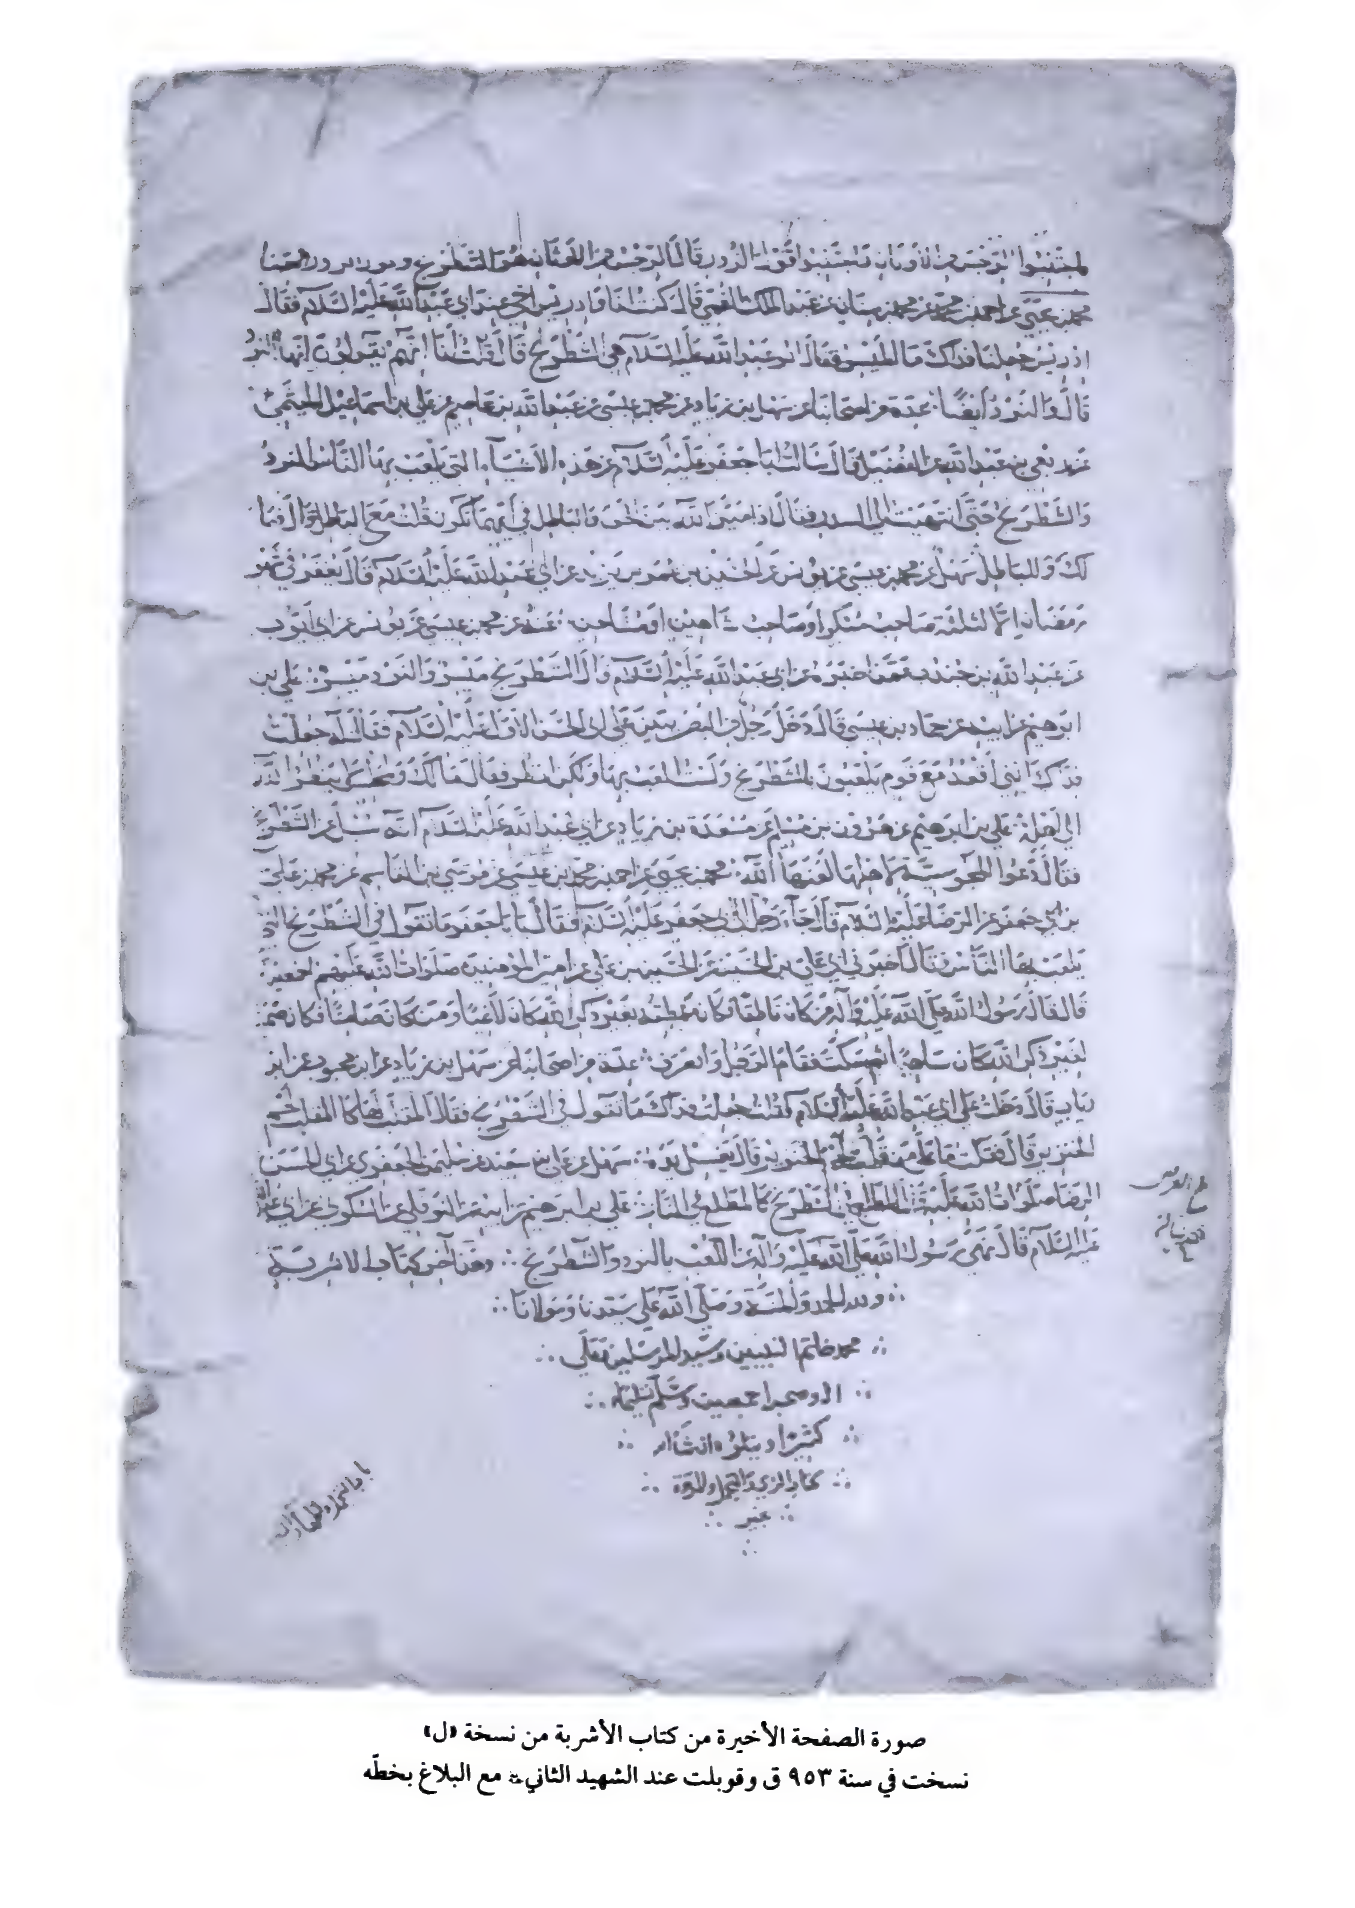 فاجتنبوا الرجس من الأوثان واجتنبوا قول الزور قال الرجس من الأوثان هو الشطرنج وقول الزور الغنا
محمد بن يحيى عن احمد بن محمد عن محمد بن سنان عن عبد الملك القمي قال كنت انا وادريس اخي عند ابي عبد الله عليه السلام فقال
ادريس جعلنا فداك ما الميسر فقال ابو عبد الله عليه السلام هي الشطرنج قال قلت اما انهم يقولون انها النرد
قال والنرد ايضا عدة من اصحابنا عن سهل بن زياد عن محمد بن عيسى عن عبد الله بن عاصم عن علي بن اسماعيل الميثمي
عن ربعي بن عبد الله عن الفضيل قال سالت ابا جعفر عليه السلام عن هذه الأشياء التي يلعب بها الناس النرد
والشطرنج حتى انتهيت الى السدر فقال اذا ميز الله بين الحق والباطل في ايهما يكون قلت مع الباطل قال فما
لك وللباطل سهل عن محمد بن عيسى عن يونس عن الحسين بن عمر بن يزيد عن ابي عبد الله عليه السلام قال يغفر في شهر
رمضان الا لثلثة صاحب مسكر او صاحب شاهين او مشاحن عنه عن محمد بن عيسى عن يونس عن ابي ايوب
عن عبد الله بن جندب عمن اخبره عن ابي عبد الله عليه السلام قال الشطرنج ميسر والنرد ميسر علي بن
ابرهيم عن ابيه عن حماد بن عيسى قال دخل رجل من البصريين على ابي الحسن الاول عليه السلام فقال له جعلت
فداك انني اقعد مع قوم يلعبون بالشطرنج ولست العب بها ولكن انظر فقال مالك ولمجلس لا ينظر الله
الى اهله علي بن ابرهيم عن هرون بن مسلم عن مسعدة بن زياد عن ابي عبد الله عليه السلام انه سئل عن الشطرنج
فقال دعوا المجوسية لاهلها لعنها الله محمد بن يحيى عن احمد بن محمد بن عيسى عن موسى بن القاسم عن محمد بن علي
بن جعفر عن الرضا عليه السلام قال جاء رجل الى ابي جعفر عليه السلام فقال يا با جعفر ما تقول في الشطرنج التي
يلعب بها الناس فقال اخبرني ابي علي بن الحسين عن الحسين بن علي عن امير المؤمنين صلوات الله عليهم اجمعين
قال قال رسول الله صلى الله عليه وآله من كان ناطقا فكان منطقه بغير ذكر الله كان لاغيا ومن كان صامتا فكان صمته
لغير ذكر الله كان ساهيا ثم سكت فقام الرجل وانصرف عدة من اصحابنا عن سهل بن زياد عن ابن محبوب عن ابن
رئاب قال دخلت على ابي عبد الله عليه السلام فقلت جعلت فداك ما تقول في الشطرنج فقال المقلب لها كالمقلب لحم
الخنزير قال فقلت ما على من قلب لحم الخنزير قال يغسل يده سهل عن علي بن سعيد عن سليمن الجعفري عن ابي الحسن
الرضا صلوات الله عليه قال المطلع في الشطرنج كالمطلع في النار علي بن ابرهيم عن ابيه عن النوفلي عن السكوني عن ابي عبد الله
عليه السلام قال نهى رسول الله صلى الله عليه وآله عن اللعب بالنرد والشطرنج وهذا آخر كتاب الاشربة
ولله الحمد والمنة وصلى الله على سيدنا ومولانا
محمد خاتم النبيين وسيد المرسلين وعلى
اله وصحبه اجمعين وسلم تسليما
كثيرا ويتلوه انشاء الله
كتاب الزي والتجمل والمروة
صورة الصفحة الأخيرة من كتاب الأشربة من نسخة «ل»
نسخت في سنة ٩٥٣ ق وقوبلت عند الشهيد الثاني مع البلاغ بخطّه